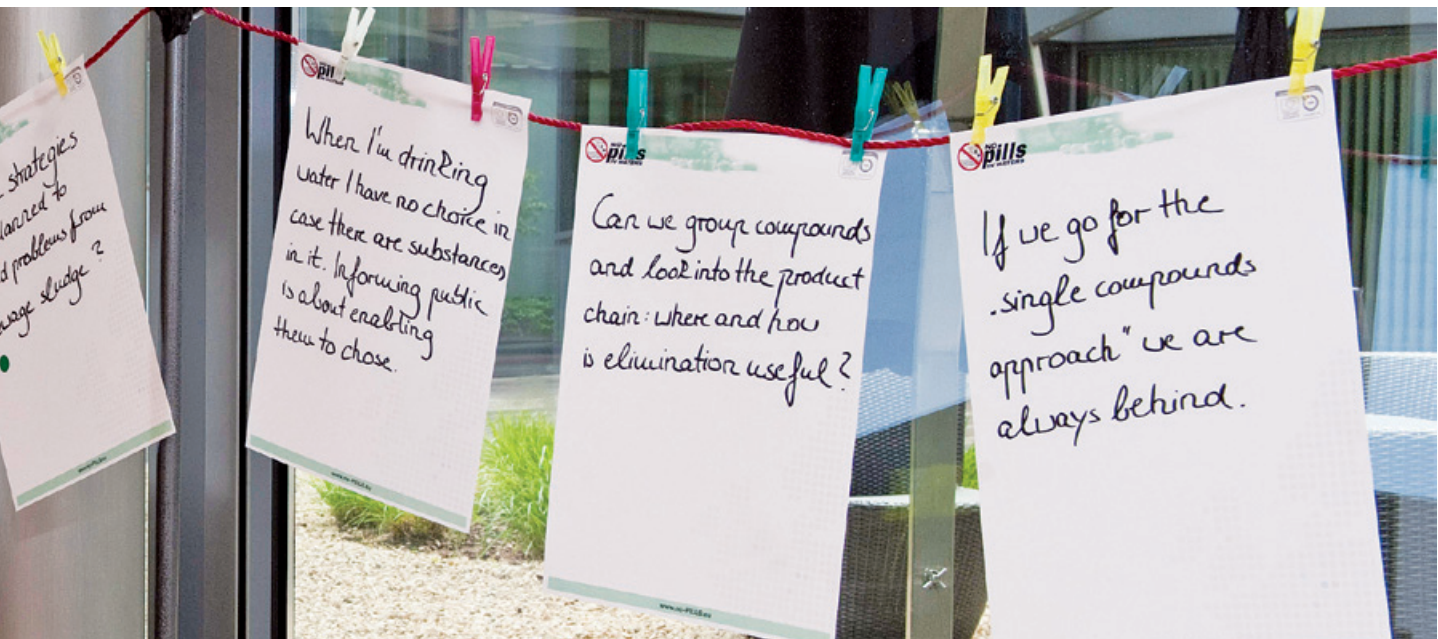 strategies
to
problems from
sludge?
When I'm drinking
water I have no choice in
case there are substances
in it. Informing public
is about enabling
them to chose.
pills
IN WATERS
Can we group compounds
and look into the product
chain: where and how
is elimination useful?
www.no-PILLS.eu
pills
IN WATERS
If we go for the
„single compounds
approach" we are
always behind.